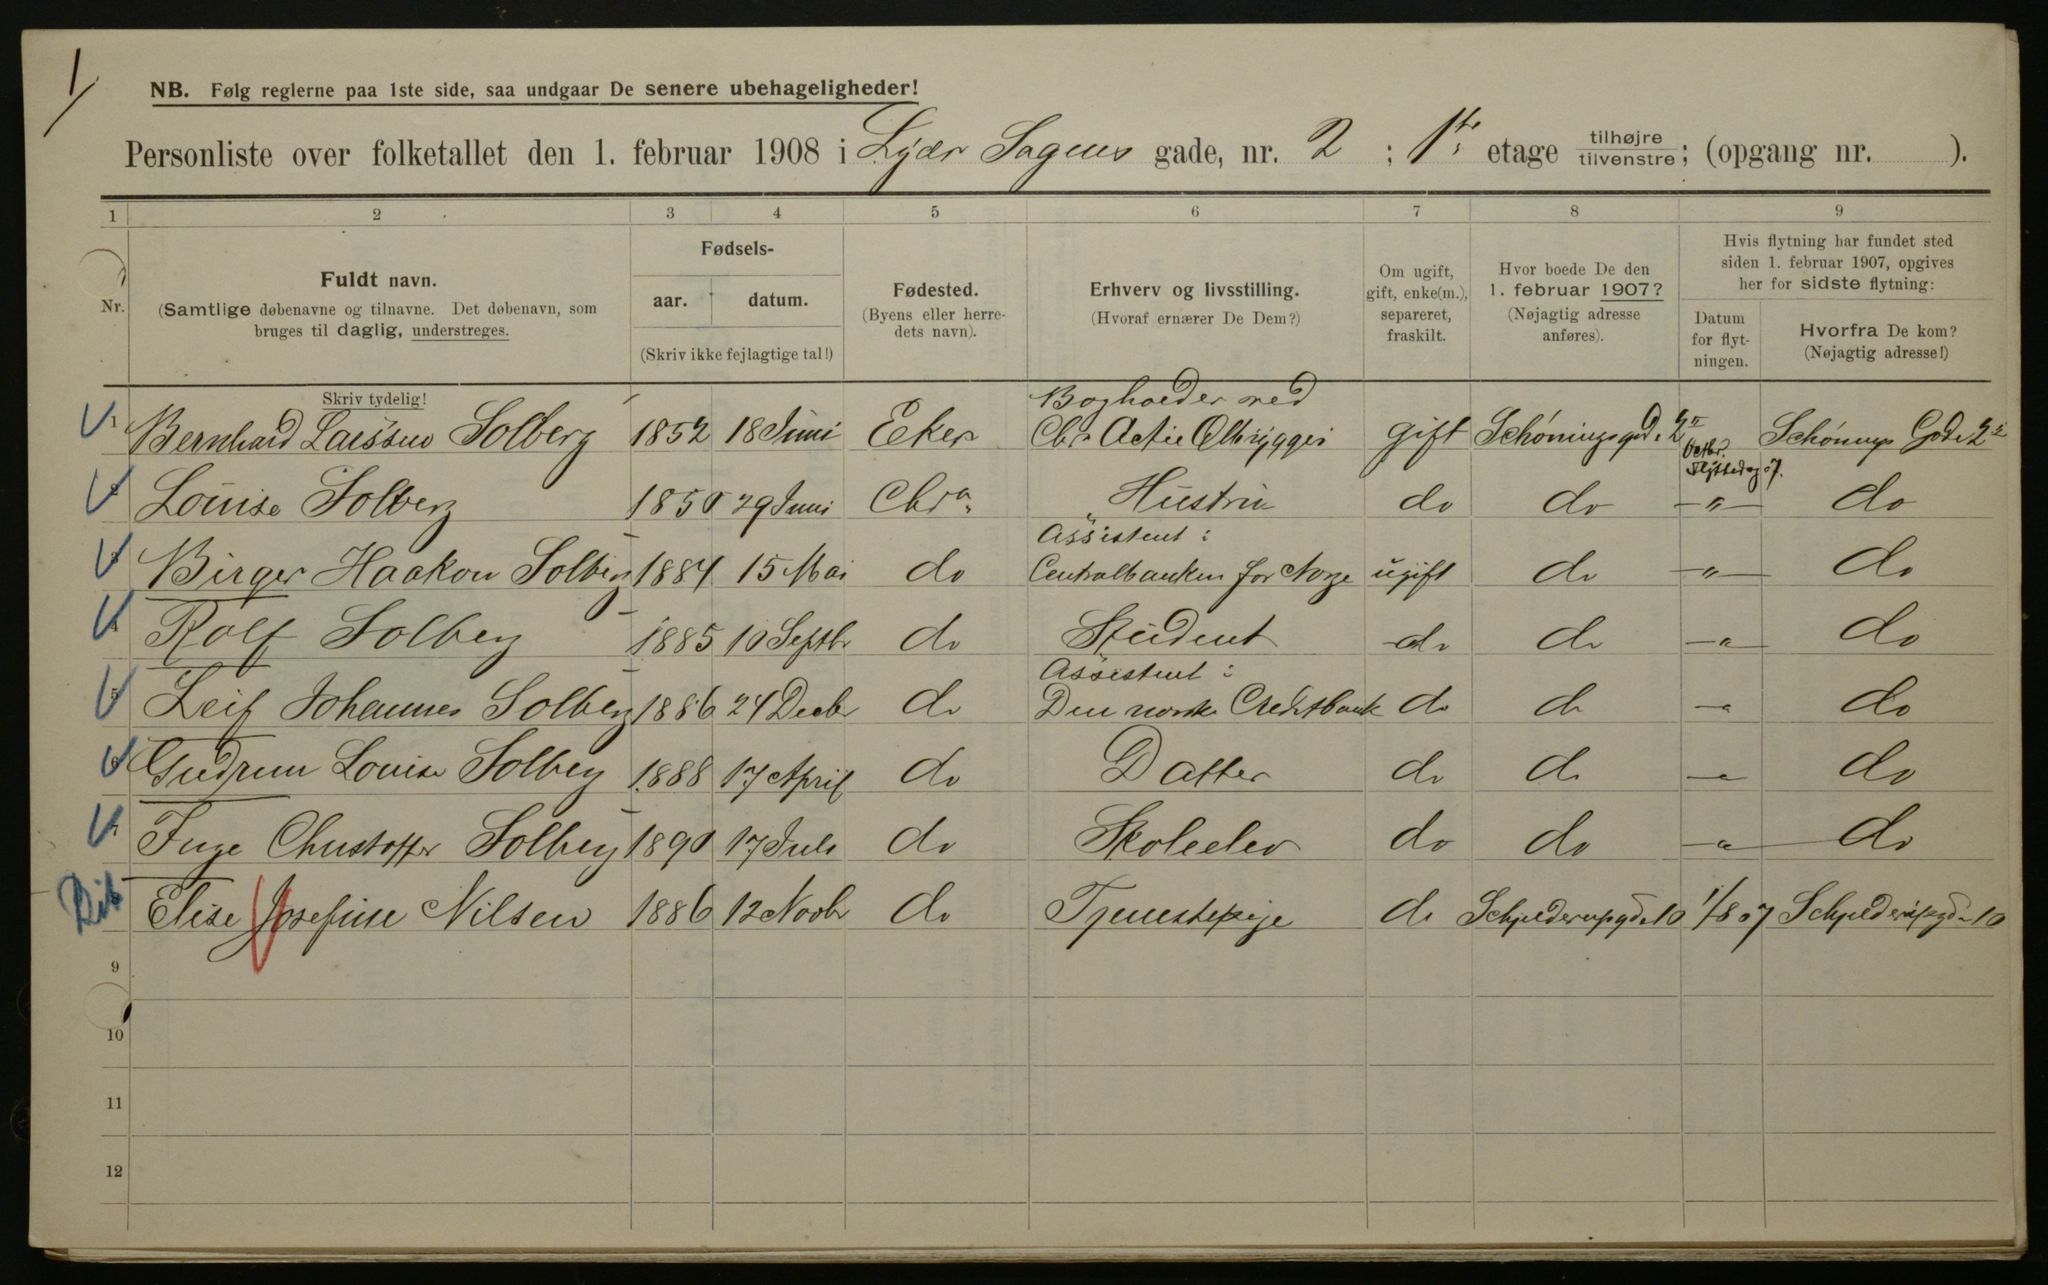 1/
NB. Følg reglerne paa 1ste side, saa undgaar De senere ubehageligheder!
Personliste over folketallet den 1. februar 1908 i Lyder Sagens gade, nr. 2 ; 1ste etage tilhøjre tilvenstre; (opgang nr. ).
1 2 3 4 5 6 7 8 9
Nr.
Fuldt navn.
(Samtlige døbenavne og tilnavne. Det døbenavn, som
bruges til daglig, understreges.
Skriv tydelig!
Fødsels-
aar. datum.
(Skriv ikke fejlagtige tal!)
Fødested.
(Byens eller herre-
dets navn).
Erhverv og livsstilling.
(Hvoraf ernærer De Dem?)
Om ugift,
gift, enke(m.),
separeret,
fraskilt.
Hvor boede De den
1. februar 1907?
(Nøjagtig adresse
anføres).
Hvis flytning har fundet sted
siden 1. februar 1907, opgives
her for sidste flytning:
Datum
for flyt-
ningen.
Hvorfra De kom?
(Nøjagtig adresse!)
Bogholder ved
1 Bernhard Larssen Solberg 1852 18 Juni Eker Chra Actie Ølbryggeri gift Schøningsgd. 2 II Schønings Gade 2 II
Octbr. Flyttedag 07.
2 Louise Solberg 1850 29 Juni Chra. Hustru do do -"- do
Assistent:
3 Birger Haakon Solberg 1884 15 Mai do Centralbanken for Norge ugift do -"- do
4 Rolf Solberg 1885 10 Septbr do Student do do -"- do
Assistent:
5 Leif Johannes Solberg 1886 24 Decbr do Den norske Creditbank do do -"- do
6 Gudrun Louise Solberg 1888 17 April do Datter do do -"- do
7 Inge Christoffer Solberg 1890 17 Juli do Skoleelev do do -"- do
Elise Josefine Nilsen 1886 12 Novbr do Tjenestepige do Schjelderupgd. 10 1/8 07 Schjelderupgd. 10
9
10
11
12